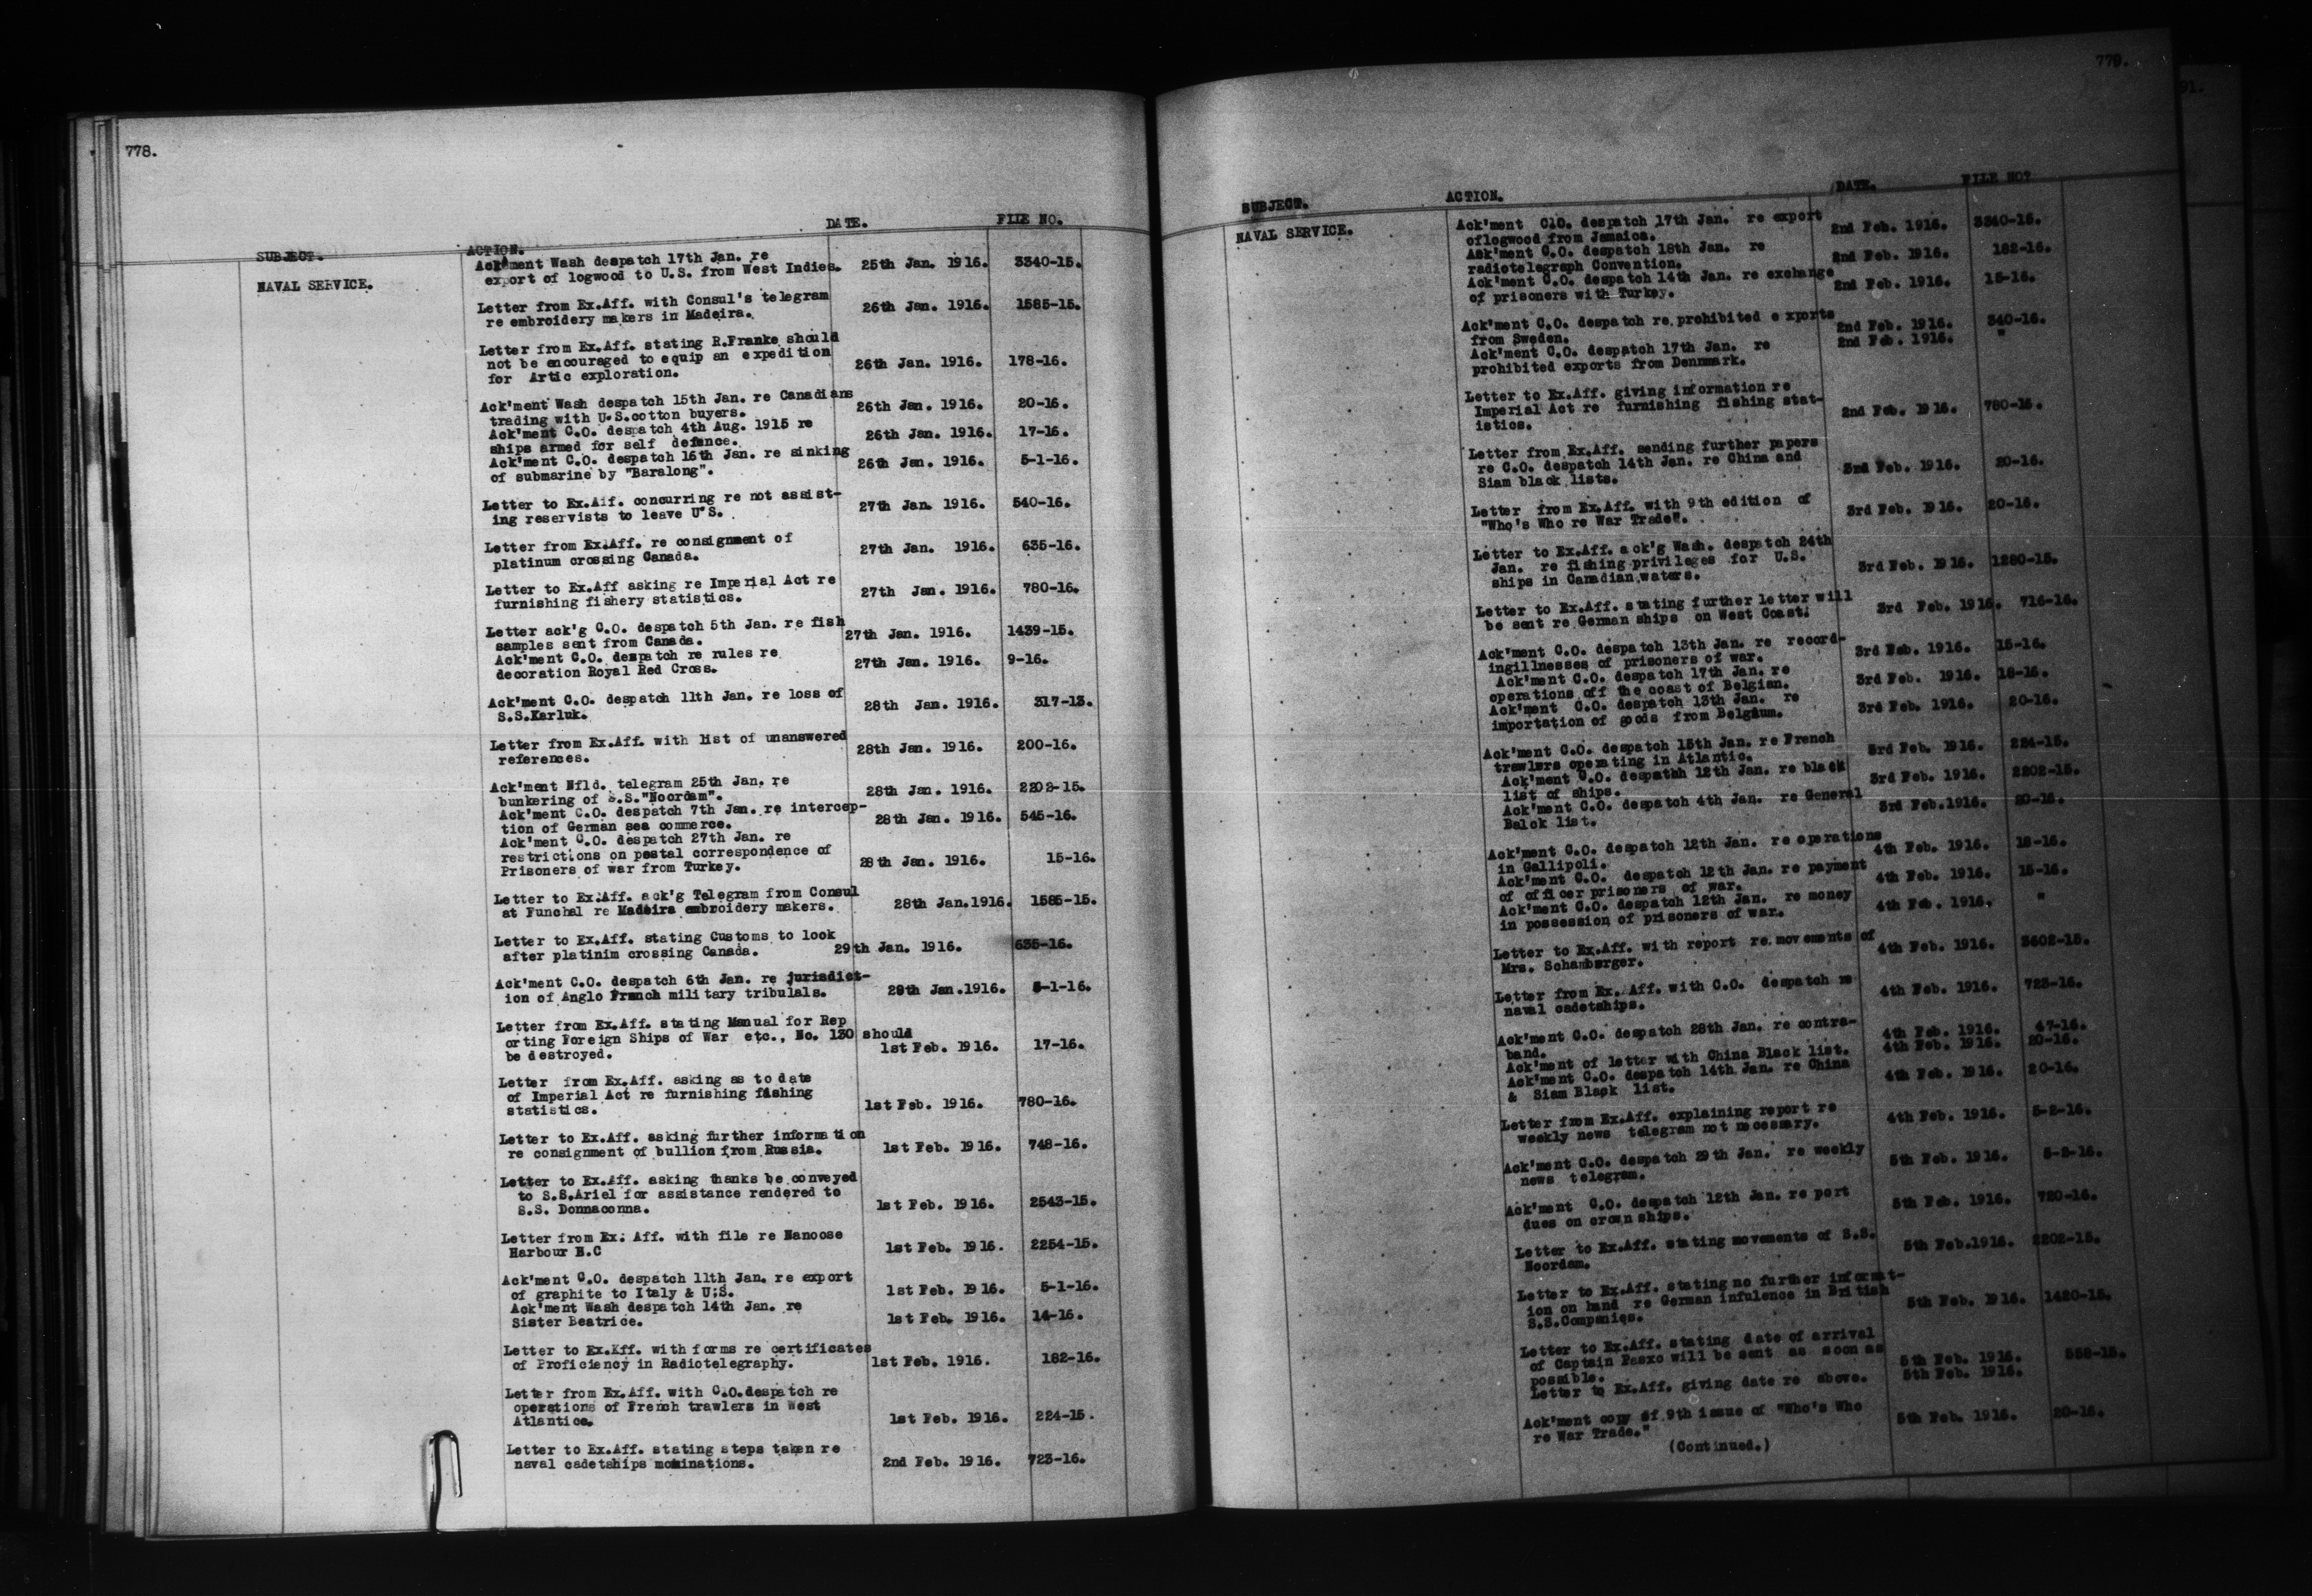 778.
SUBJECT. ACTION. DATE. FILE NO.
NAVAL SERVICE.
Ack'ment Wash despatch 17th Jan. re
export of logwood to U.S. from West Indies. 25th Jan. 1916. 3340-15.
Letter from Ex.Aff. with Consul's telegram
re embroidery makers in Madeira. 26th Jan. 1916. 1585-15.
Letter from Ex.Aff. stating R.Franke should
not be encouraged to equip an expedition
for Artic exploration. 26th Jan. 1916. 178-16.
Ack'ment Wash despatch 15th Jan. re Canadians
trading with U.S.cotton buyers. 26th Jan. 1916. 20-16.
Ack'ment C.O. despatch 4th Aug. 1915 re
ships armed for self defence. 26th Jan. 1916. 17-16.
Ack'ment C.O. despatch 16th Jan. re sinking
of submarine by "Baralong". 26th Jan. 1916. 5-1-16.
Letter to Ex.Aff. concurring re not assist-
ing reservists to leave U.S. 27th Jan. 1916. 540-16.
Letter from Ex.Aff. re consignment of
platinum crossing Canada. 27th Jan. 1916. 635-16.
Letter to Ex.Aff asking re Imperial Act re
furnishing fishery statistics. 27th Jan. 1916. 780-16.
Letter ack'g C.O. despatch 5th Jan. re fish
samples sent from Canada. 27th Jan. 1916. 1439-15.
Ack'ment C.O. despatch re rules re
decoration Royal Red Cross. 27th Jan. 1916. 9-16.
Ack'ment C.O. despatch 11th Jan. re loss of
S.S.Karluk. 28th Jan. 1916. 317-13.
Letter from Ex.Aff. with list of unanswered
references. 28th Jan. 1916. 200-16.
Ack'ment Nfld. telegram 25th Jan. re
bunkering of S.S."Noordam". 28th Jan. 1916. 2202-15.
Ack'ment C.O. despatch 7th Jan. re intercep-
tion of German sea commerce. 28th Jan. 1916. 545-16.
Ack'ment C.O. despatch 27th Jan. re
restrictions on postal correspondence of
Prisoners of war from Turkey. 28th Jan. 1916. 15-16.
Letter to Ex.Aff. ack'g Telegram from Consul
at Funchal re Madeira embroidery makers. 28th Jan.1916. 1585-15.
Letter to Ex.Aff. stating Customs to look
after platinim crossing Canada. 29th Jan. 1916. 635-16.
Ack'ment C.O. despatch 6th Jan. re jurisdict-
ion of Anglo French military tribulals. 29th Jan.1916. 5-1-16.
Letter from Ex.Aff. stating Manual for Rep
orting Foreign Ships of War etc., No. 130 should
be destroyed. 1st Feb. 1916. 17-16.
Letter from Ex.Aff. asking as to date
of Imperial Act re furnishing fishing
statistics. 1st Feb. 1916. 780-16.
Letter to Ex.Aff. asking further information
re consignment of bullion from Russia. 1st Feb. 1916. 748-16.
Letter to Ex.Aff. asking thanks be conveyed
to S.S.Ariel for assistance rendered to
S.S. Donnaconna. 1st Feb. 1916. 2543-15.
Letter from Ex. Aff. with file re Nanoose
Harbour B.C 1st Feb. 1916. 2254-15.
Ack'ment C.O. despatch 11th Jan. re export
of graphite to Italy & U.S. 1st Feb. 1916. 5-1-16.
Ack'ment Wash despatch 14th Jan. re
Sister Beatrice. 1st Feb. 1916. 14-16.
Letter to Ex.Kff. with forms re certificates
of Proficiency in Radiotelegraphy. 1st Feb. 1916. 182-16.
Letter from Ex.Aff. with C.O.despatch re
operations of French trawlers in West
Atlantice. 1st Feb. 1916. 224-15.
Letter to Ex.Aff. stating steps taken re
naval cadetships mominations. 2nd Feb. 1916. 723-16.
779.
91.
SUBJECT. ACTION. DATE. FILE NO?
NAVAL SERVICE.
Ack'ment C.O. despatch 17th Jan. re export
oflogwood from Jamaica. 2nd Feb. 1916. 3340-15.
Ack'ment C.O. despatch 18th Jan. re
radiotelegraph Convention. 2nd Feb. 1916. 182-16.
Ack'ment C.O. despatch 14th Jan. re exchange
of prisoners with Turkey. 2nd Feb. 1916. 15-16.
Ack'ment C.O. despatch re prohibited exports
from Sweden. 2nd Feb. 1916. 340-16.
Ack'ment C.O. despatch 17th Jan. re
prohibited exports from Dennmark. 2nd Feb. 1916. "
Letter to Ex.Aff. giving information re
Imperial Act re furnishing fishing stat-
istics. 2nd Feb. 1916. 780-16.
Letter from Ex.Aff. sending further papers
re C.O. despatch 14th Jan. re China and
Siam black lists. Feb. 1916. 20-16.
Letter from Ex.Aff. with 9th edition of
"Who's Who re War Trade". 3rd Feb. 1916. 20-16.
Letter to Ex.Aff. ack'g Wash. despatch 24th
Jan. re fishing privileges for U.S.
ships in Canadian waters. 3rd Feb. 1916. 1280-15.
Letter to Ex.Aff. stating further letter will
be sent re German ships on West Coast. 3rd Feb. 1916. 716-16.
Ack'ment C.O. despatch 13th Jan. re record-
ingillnesses of prisoners of war. 3rd Feb. 1916. 15-16.
Ack'ment C.O. despatch 17th Jan. re
operations off the coast of Belgian. 3rd Feb. 1916. 18-16.
Ack'ment C.O. despatch 13th Jan. re
importation of goods from Belgium. 3rd Feb. 1916. 20-16.
Ack'ment C.O. despatch 15th Jan. re French
trawlers operating in Atlantic. 3rd Feb. 1916. 224-15.
Ack'ment C.O. despatch 12th Jan. re black
list of ships. 3rd Feb. 1916. 2202-15.
Ack'ment C.O. despatch 4th Jan. re General
Balck list. 3rd Feb.1916. 20-16.
Ack'ment C.O. despatch 12th Jan. re operations
in Gallipoli. 4th Feb. 1916. 18-16.
Ack'ment C.O. despatch 12th Jan. re payment
of officer prisoners of war. 4th Feb. 1916. 15-16.
Ack'ment C.O. despatch 12th Jan. re money
in possession of prisoners of war. 4th Feb. 1916. "
Letter to Ex.Aff. with report re movements of
Mrs. Schamberger. 4th Feb. 1916. 3602-15.
Letter from Ex. Aff. with C.O. despatch re
naval cadetships. 4th Feb. 1916. 723-16.
Ack'ment C.O. despatch 28th Jan. re contra-
band. 4th Feb. 1916. 47-16.
Ack'ment of letter with China Black list. 4th Feb. 1916. 20-16.
Ack'ment C.O. despatch 14th Jan. re China
& Siam Black list. 4th Feb. 1916. 20-16.
Letter from Ex.Aff. explaining report re
weekly news telegram not necessary. 4th Feb. 1916. 5-2-16.
Ack'ment C.O. despatch 29th Jan. re weekly
news telegram. 5th Feb. 1916. 5-2-16.
Ack'ment C.O. despatch 12th Jan. re port
dues on crown ships. 5th Feb. 1916. 720-16.
Letter to Ex.Aff. stating movements of S.S.
Noordam. 5th Feb.1916. 2202-15.
Letter to Ex.Aff. stating no further informat-
ion on hand re German infulence in British
S.S.Companies. 5th Feb. 1916. 1420-15.
Letter to Ex.Aff. stating date of arrival
of Captain Pasxo will be sent as soon as
possible. 5th Feb. 1916. 558-15.
Letter to Ex.Aff. giving date re above. 5th Feb. 1916.
Ack'ment copy of 9th issue of "Who's Who
re War Trade." 5th Feb. 1916. 20-16.
(Continued.)